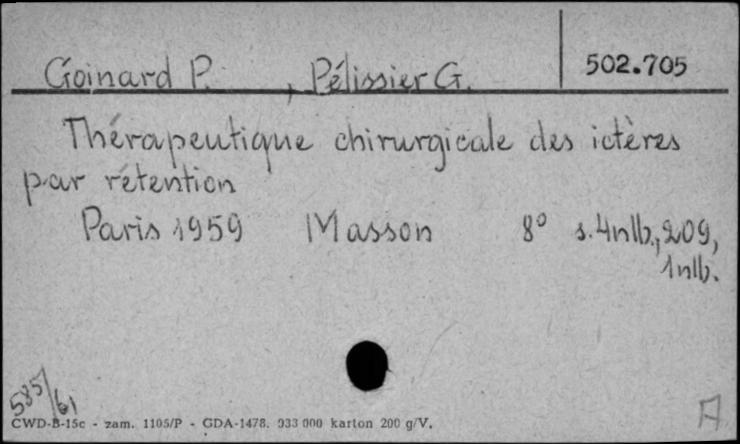 Goinard P. , Pélissier G. 502.705
Thérapeutique chirurgicale des ictères
par rétention
Paris 1959 Masson 8° s. 4nlb., 209,
1nlb.
585/61
A
CWD-B-15c - zam. 1105/P - GDA-1478. 933 000 karton 200 g/V.